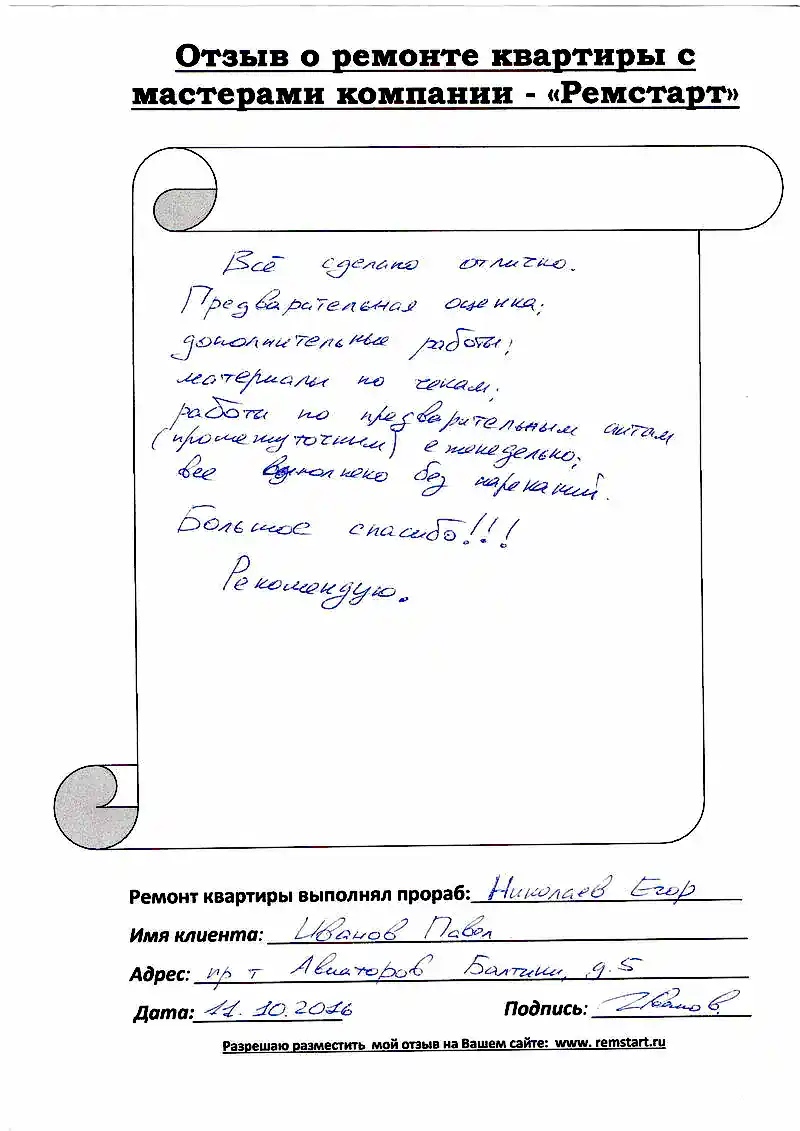 Отзыв о ремонте квартиры с
мастерами компании - «Ремстарт»
Всё сделано отлично.
Предварительная оценка;
дополнительные работы;
материалы по чекам;
работы по предварительным актам
(промежуточным) еженедельно;
все выполнено без нареканий.
Большое спасибо!!!
Рекомендую.
Ремонт квартиры выполнял прораб: Николаев Егор
Имя клиента: Иванов Павел
Адрес: пр т Авиаторов Балтики, д. 5
Дата: 11.10.2016 Подпись: Иванов.
Разрешаю разместить мой отзыв на Вашем сайте: www. remstart.ru